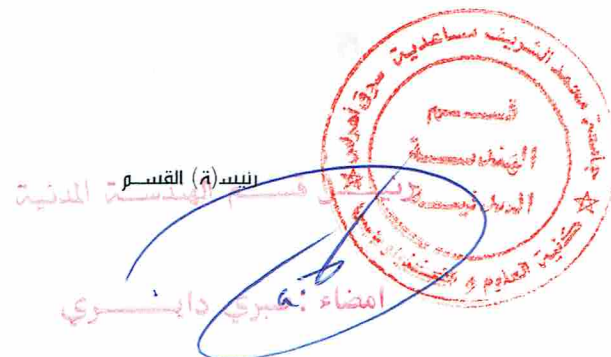 جامعة محمد الشريف مساعدية سوق أهراس
قسم
الهندسة
المدنية
كلية العلوم و
رئيس(ة) القسم
رئيس قسم الهندسة المدنية
امضاء : صبري دايري